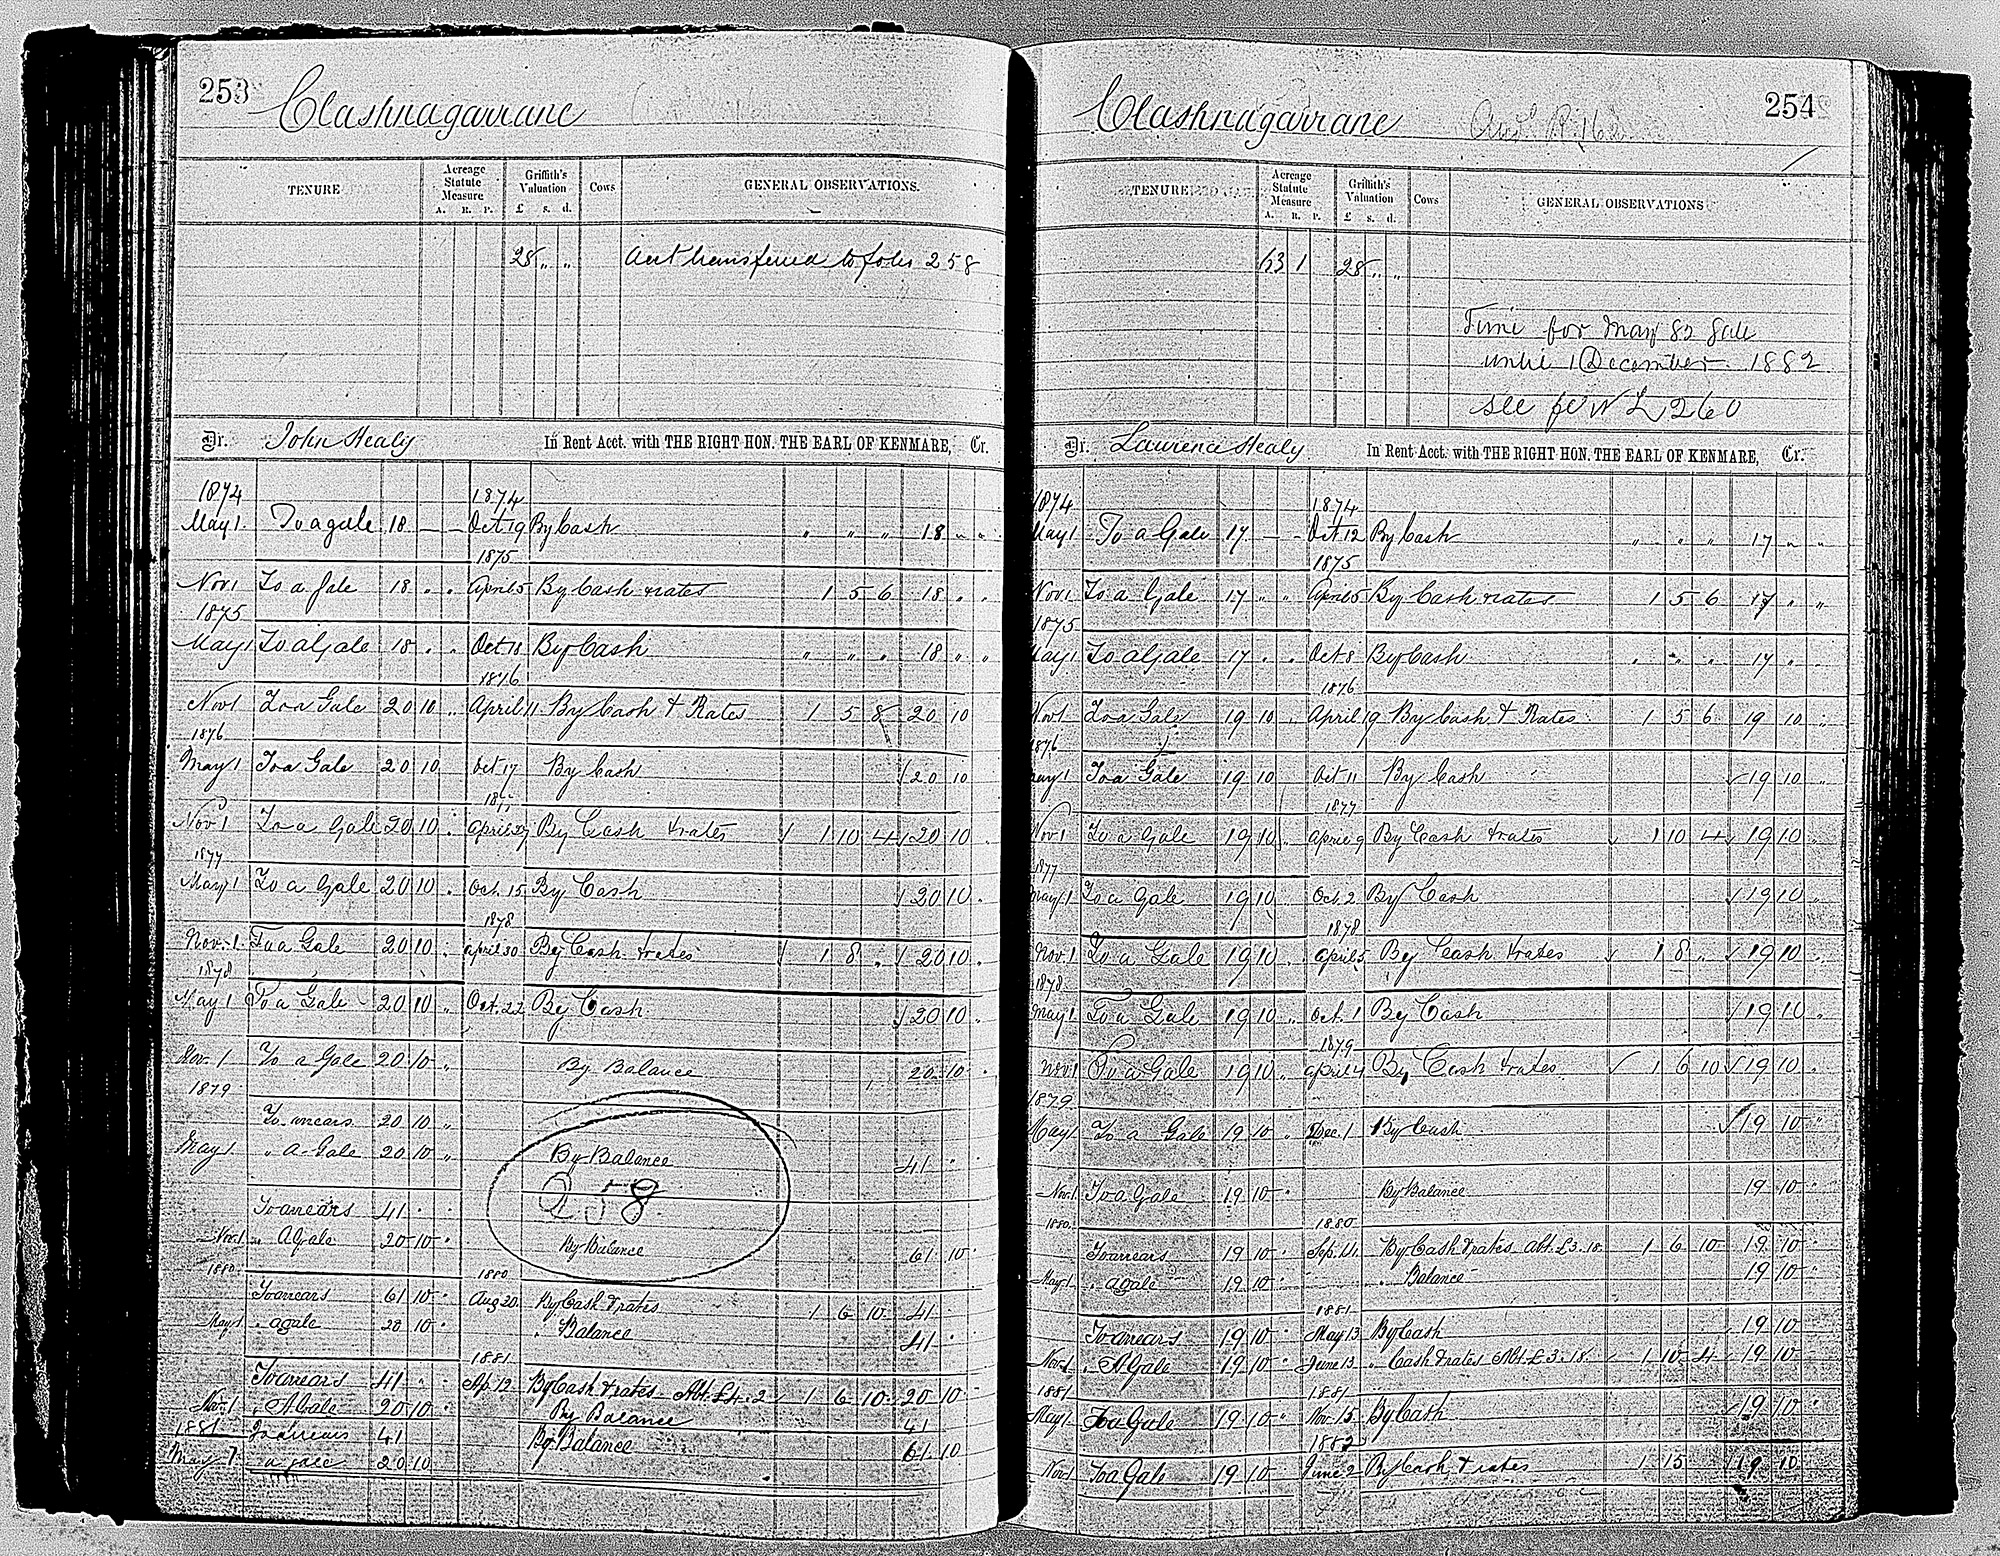 253
Clashnagarrane
TENURE
Acreage Statute Measure A. R. P.
Griffith's Valuation £ s. d.
Cows
GENERAL OBSERVATIONS.
28 " "
Acct transferred to folio 258
Dr. John Healy In Rent Acct. with THE RIGHT HON. THE EARL OF KENMARE, Cr.
1874 1874
May 1. To a gale 18 — — Oct 19 By Cash " " " 18 " "
1875
Nov 1 To a gale 18 " " April 5 By Cash & rates 1 5 6 18 " "
1875
May 1 To a Gale 18 " " Oct 18 By Cash " " " 18 " "
1876
Nov 1 To a Gale 20 10 " April 11 By Cash & Rates 1 5 8 20 10
1876
May 1 To a Gale 20 10 Oct 17 By Cash 20 10
Nov 1 To a Gale 20 10 " April 27 By Cash & rates 1 10 4 20 10 "
1877
May 1 To a Gale 20 10 " Oct. 15 By Cash 20 10 "
1878
Nov. 1 To a Gale 20 10 " April 30 By Cash & rates 1 8 " 20 10 "
1878
May 1 To a Gale 20 10 " Oct. 22 By Cash 20 10 "
Nov. 1 To a Gale 20 10 " By Balance 20 10 "
1879
To arrears 20 10 "
May 1 " A Gale 20 10 " By Balance 41 " "
258
To arrears 41 " "
Nov. 1 " A Gale 20 10 " By Balance 61 10 "
1880 1880
To arrears 61 10 " Aug 20 By Cash & rates 1 6 10 41 "
May 1 " a gale 20 10 " " Balance 41 "
1881
To arrears 41 " " Ap. 12 By Cash & rates Abt. £4.2 1 6 10 20 10
Nov. 1 " A Gale 20 10 " By Balance 41
1881 To arrears 41 By Balance 61 10
May 1 " a gale 20 10
254
Clashnagarrane
TENURE
Acreage Statute Measure A. R. P.
Griffith's Valuation £ s. d.
Cows
GENERAL OBSERVATIONS
63 1 28 " "
Time for May 82 Gale
until 1 December 1882
see 260
Dr. Laurence Healy In Rent Acct. with THE RIGHT HON. THE EARL OF KENMARE, Cr.
1874 1874
May 1 To a Gale 17 — — Oct 12 By Cash " " " 17 " "
1875
Nov 1 To a Gale 17 " " April 5 By Cash & rates 1 5 6 17 " "
1875
May 1 To a Gale 17 " " Oct 8 By Cash " " " 17 "
1876
Nov 1 To a Gale 19 10 " April 19 By Cash & Rates 1 5 6 19 10 "
1876
May 1 To a Gale 19 10 Oct 11 By Cash 19 10 "
1877
Nov. 1 To a Gale 19 10 " April 9 By Cash & rates 1 10 4 19 10 "
1877
May 1 To a Gale 19 10 Oct. 2 By Cash 19 10 "
1878
Nov. 1 To a Gale 19 10 " April 5 By Cash & rates 1 8 " 19 10 "
1878
May 1 To a Gale 19 10 " Oct. 1 By Cash 19 10 "
1879
Nov 1 To a Gale 19 10 " April 4 By Cash & rates 1 6 10 19 10 "
1879
May 1 To a Gale 19 10 " Dec. 1 By Cash 19 10 "
Nov. 1 To a Gale 19 10 " By Balance 19 10 "
1880 1880
To arrears 19 10 " Sep. 11 By Cash & rates Abt. £3.18 1 6 10 19 10 "
May 1 " a gale 19 10 " " Balance 19 10 "
1881
To arrears 19 10 " May 13 By Cash 19 10
Nov. 1 " A Gale 19 10 " June 13 " Cash & rates Abt. £3.18 1 10 4 19 10 "
1881 1881
May 1 To a Gale 19 10 " Nov. 15 By Cash 19 10 "
1882
Nov 1 To a Gale 19 10 June 2 By Cash & rates 1 15 19 10